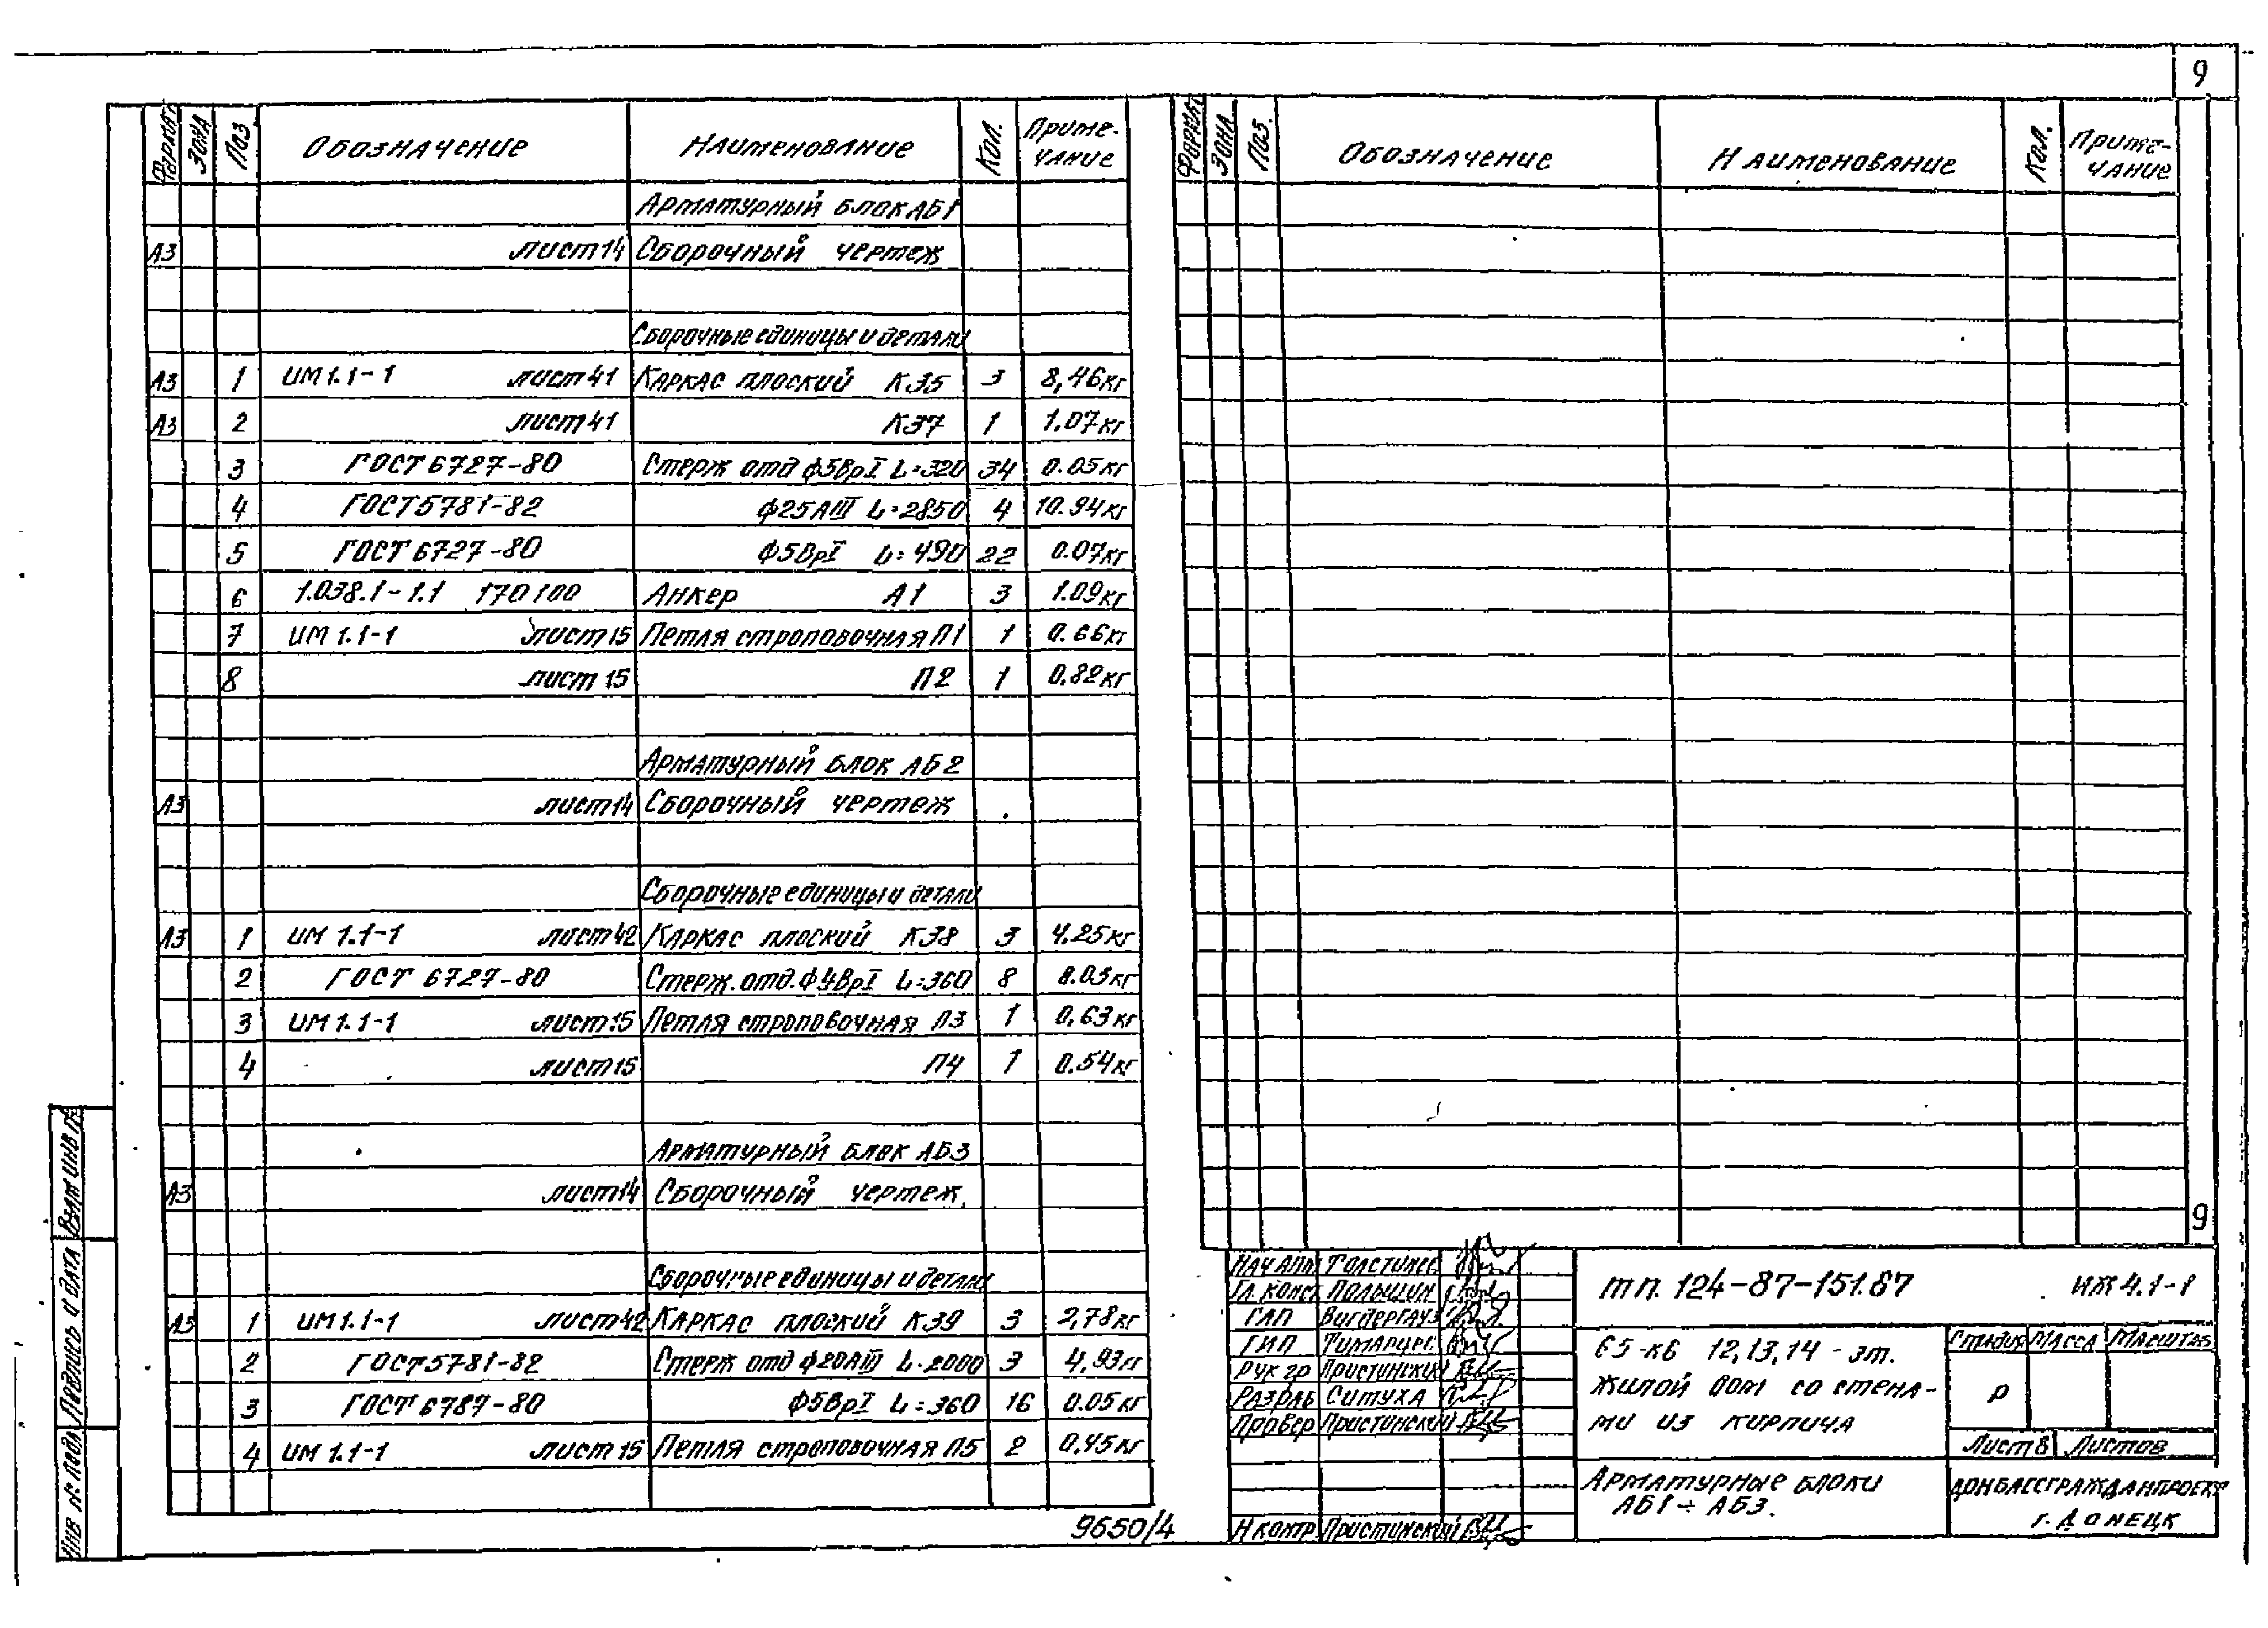 9
Формат Зона Поз Обозначение Наименование Кол. Приме-чание
Арматурный блок АБ1
А3 лист 14 Сборочный чертеж
Сборочные единицы и детали
А3 1 ИМ 1.1-1 лист 41 Каркас плоский К35 3 8,46кг
А3 2 лист 41 К37 1 1.07кг
3 ГОСТ 6727-80 Стерж отд ф5ВрI L=320 34 0.05кг
4 ГОСТ 5781-82 ф25АIII L=2850 4 10.94кг
5 ГОСТ 6727-80 ф5ВрI L=490 22 0.07кг
6 1.038.1-1.1 170100 Анкер А1 3 1.09кг
7 ИМ 1.1-1 лист 15 Петля строповочная П1 1 0.66кг
8 лист 15 П2 1 0,82кг
Арматурный блок АБ2
А3 лист 14 Сборочный чертеж
Сборочные единицы и детали
А3 1 ИМ 1.1-1 лист 42 Каркас плоский К38 3 4.25кг
2 ГОСТ 6727-80 Стерж. отд. L=360 8
3 ИМ 1.1-1 лист 15 Петля строповочная П3 1 0,63кг
4 лист 15 П4 1 0.54кг
Арматурный блок АБ3
А3 лист 14 Сборочный чертеж.
Сборочные единицы и детали
А3 1 ИМ 1.1-1 лист 42 Каркас плоский К39 3 2,78кг
2 ГОСТ 5781-82 Стерж отд ф20АIII L=2000 3 4,93кг
3 ГОСТ 6787-80 ф5ВрI L=360 16 0.05кг
4 ИМ 1.1-1 лист 15 Петля строповочная П5 2 0,45кг
9650/4
Формат Зона Поз. Обозначение Наименование Кол. Приме-чание
9
Нач АПМ
Гл. конс
ГАП Вигдергауз
ГИП
Рук гр Пристинский
Разраб Ситуха
Провер Пристинский
Н контр Пристинский
тп. 124-87-151.87 ИЖ 4.1-1
65-кв 12,13,14-эт.
жилой дом со стена-
ми из кирпича
Стадия Масса Масштаб
Р
Лист 8 Листов
Арматурные блоки
АБ1÷АБ3.
Донбассгражданпроект
г. Донецк
Взам инв №
Подпись и дата
Инв № подл